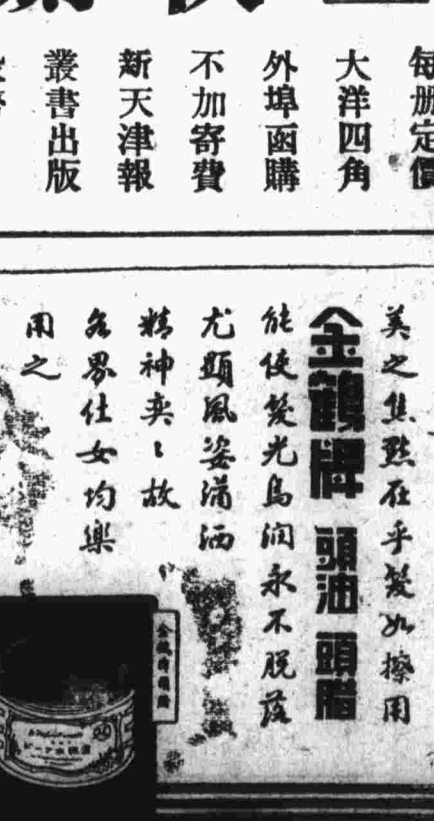 每册定價
大洋四角
外埠函購
不加寄費
新天津報
叢書出版
美之焦點在乎髮如擦用
金鶴牌 頭油 頭腊
能使髮光烏润永不脱落
尤顕風姿潇洒
精神奕〻故
各界仕女均樂
用之